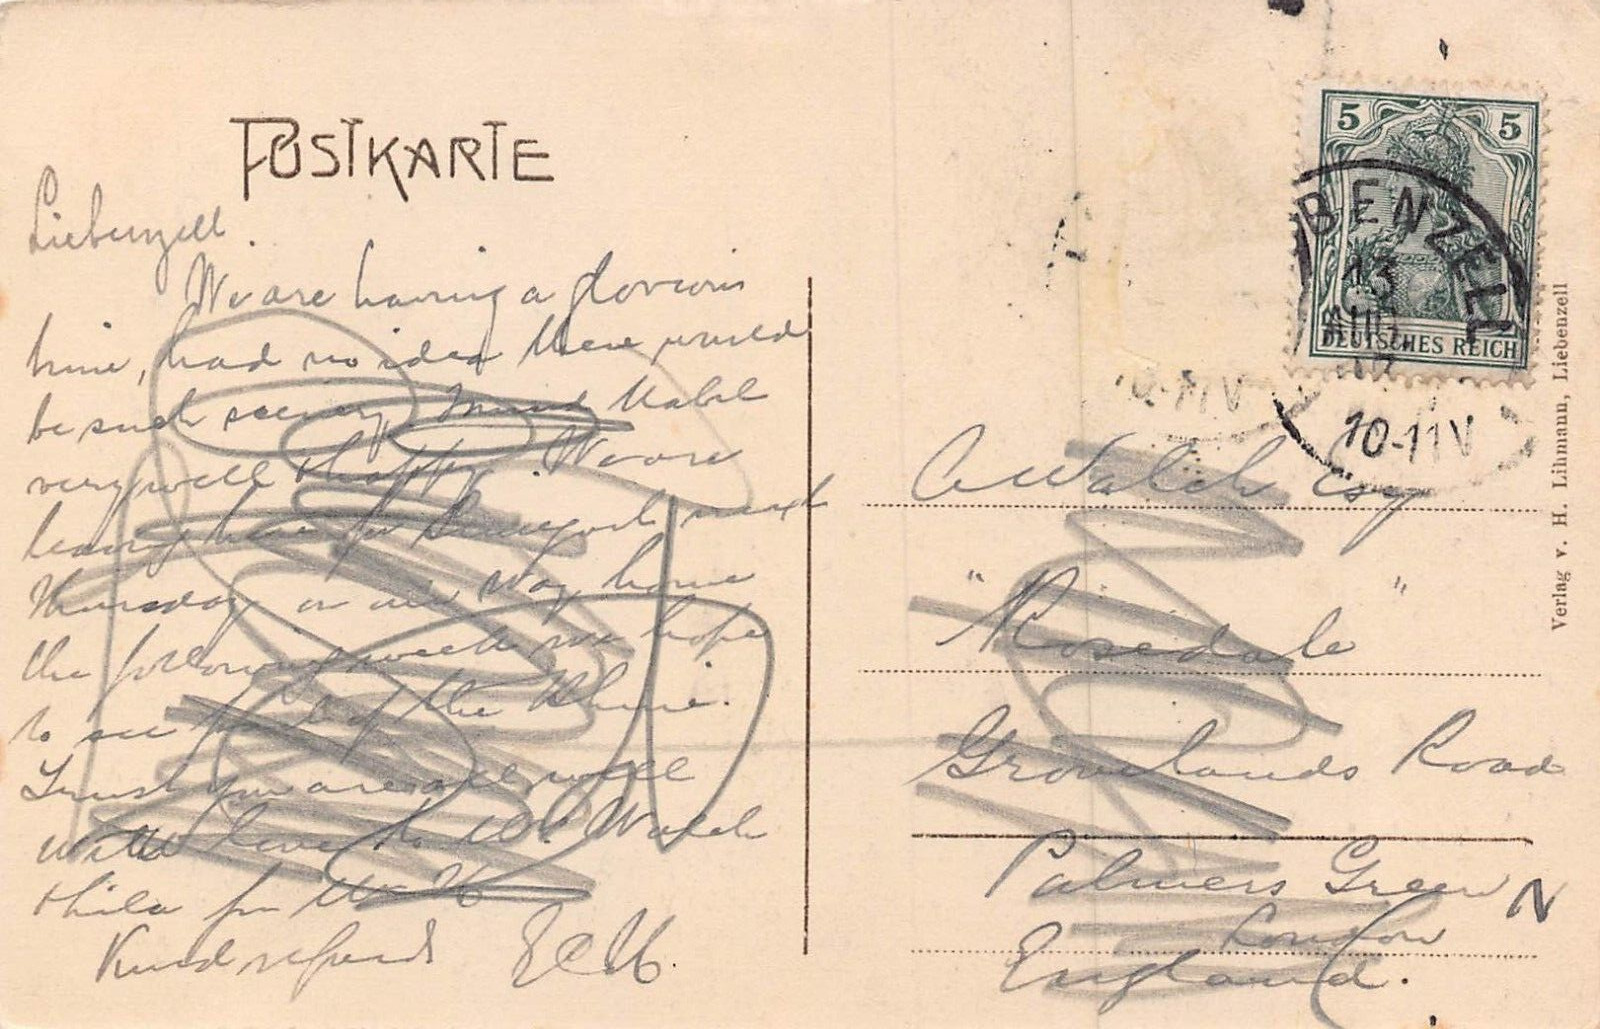 POSTKARTE
Liebenzell
We are having a glorious
time, had no idea there would
be such scenery Mabel
very well & happy. We are
leaving here for next
Thursday on our way home
the following week we hope
to see of the Rhine.
Trust you are all well
with love to Walch
& Hilda
Kind regards
5 5
BENZELL
13
AUG
DEUTSCHES REICH
10-11V
Walch Esq
"Rosedale"
Grovelands Road
Palmers Green N
London
England.
Verlag v. H. Lihmann, Liebenzell